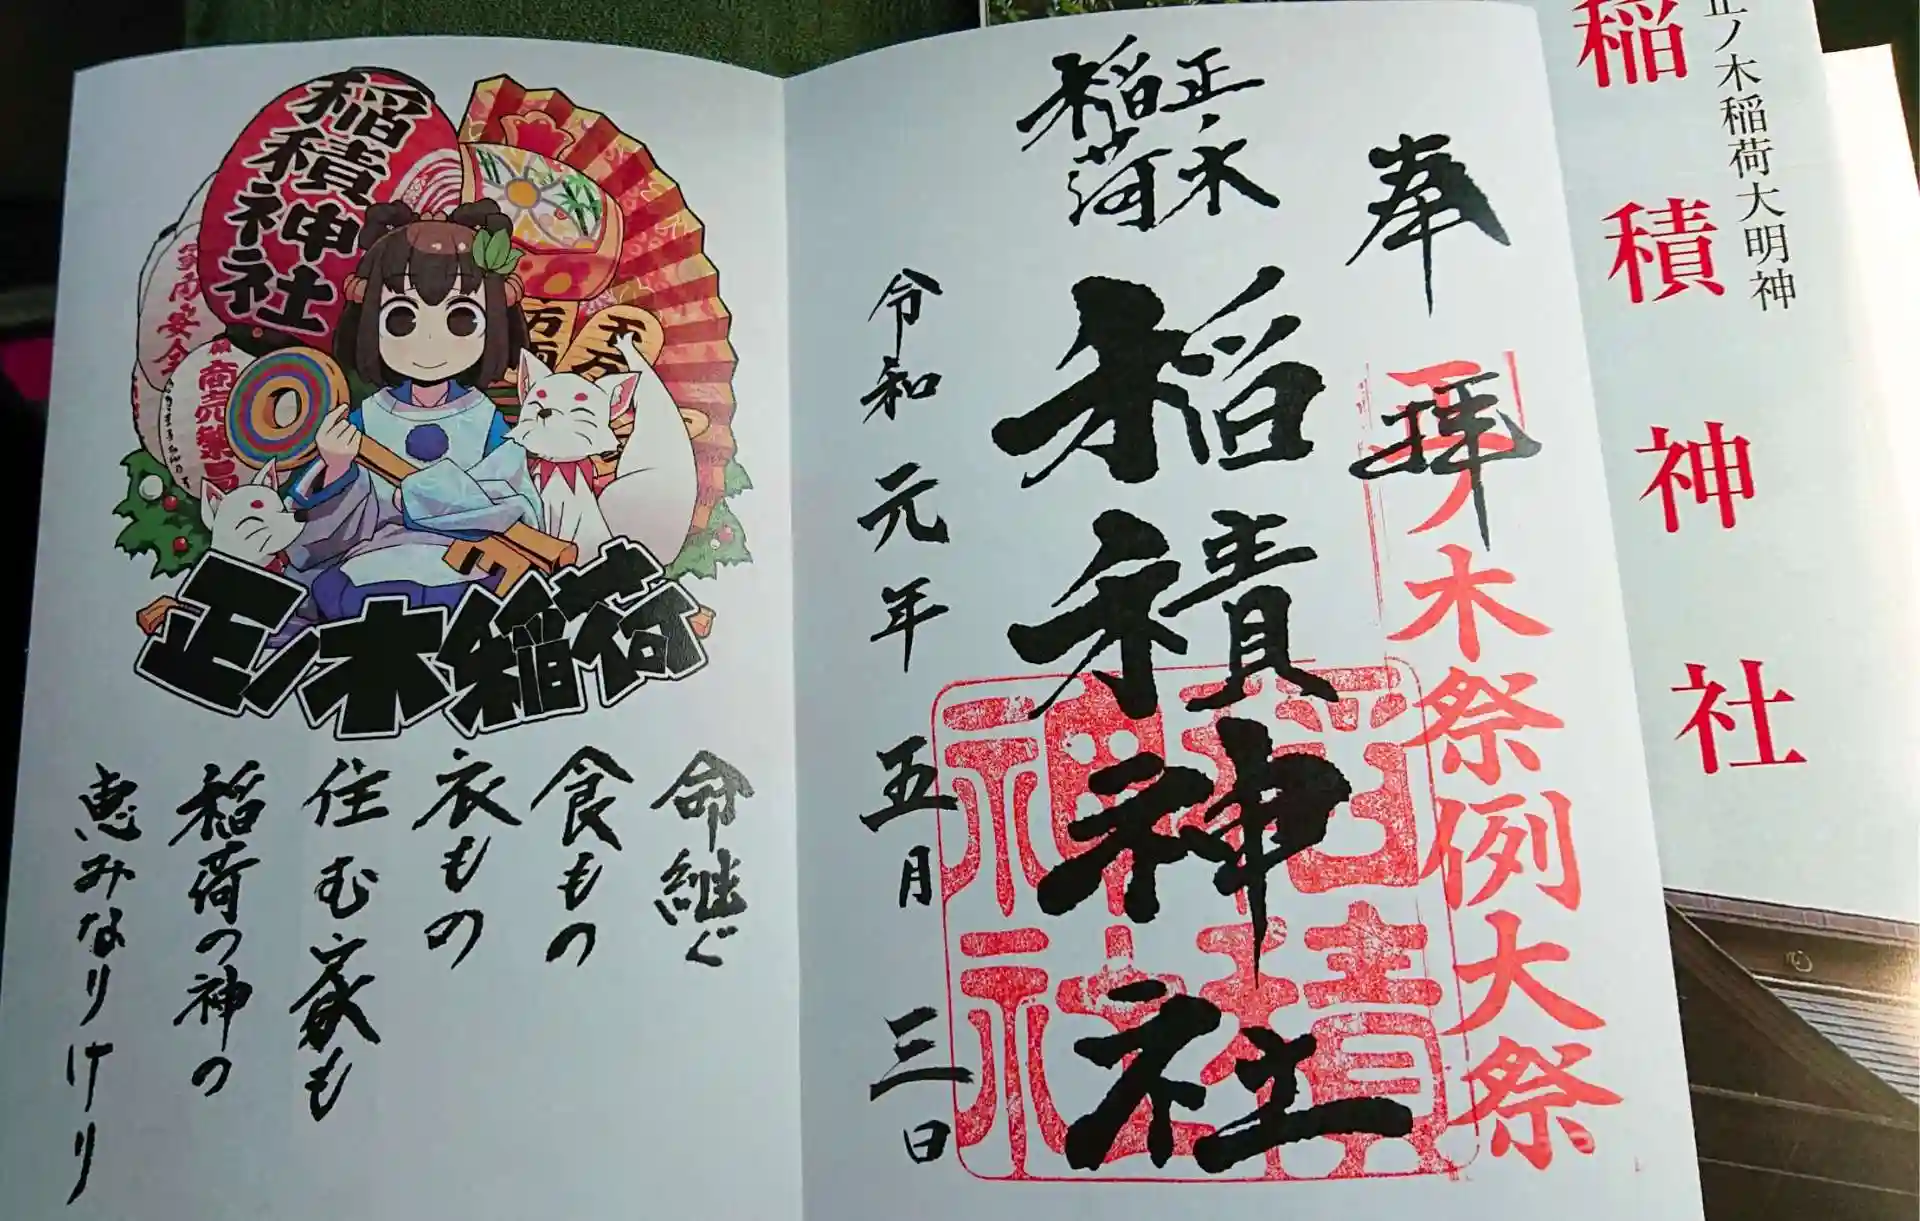 正ノ木稲荷大明神
稲積神社
奉拝
正ノ木祭例大祭
正ノ木
稲荷
稲積神社
稲積神社
令和元年五月三日
稲積神社
家内安全
商売繁昌
万両
千万
正ノ木稲荷
命継ぐ
食もの
衣もの
住む家も
稲荷の神の
恵みなりけり